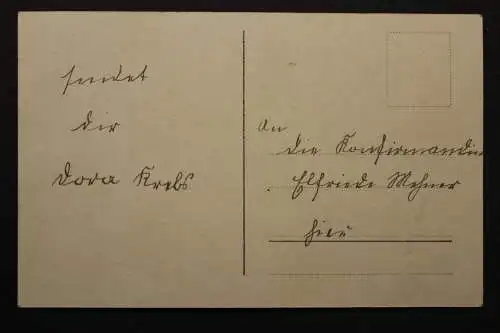 sendet
dir
Dora Krebs
An
die Konfirmandin
Elfriede Mehner
hier